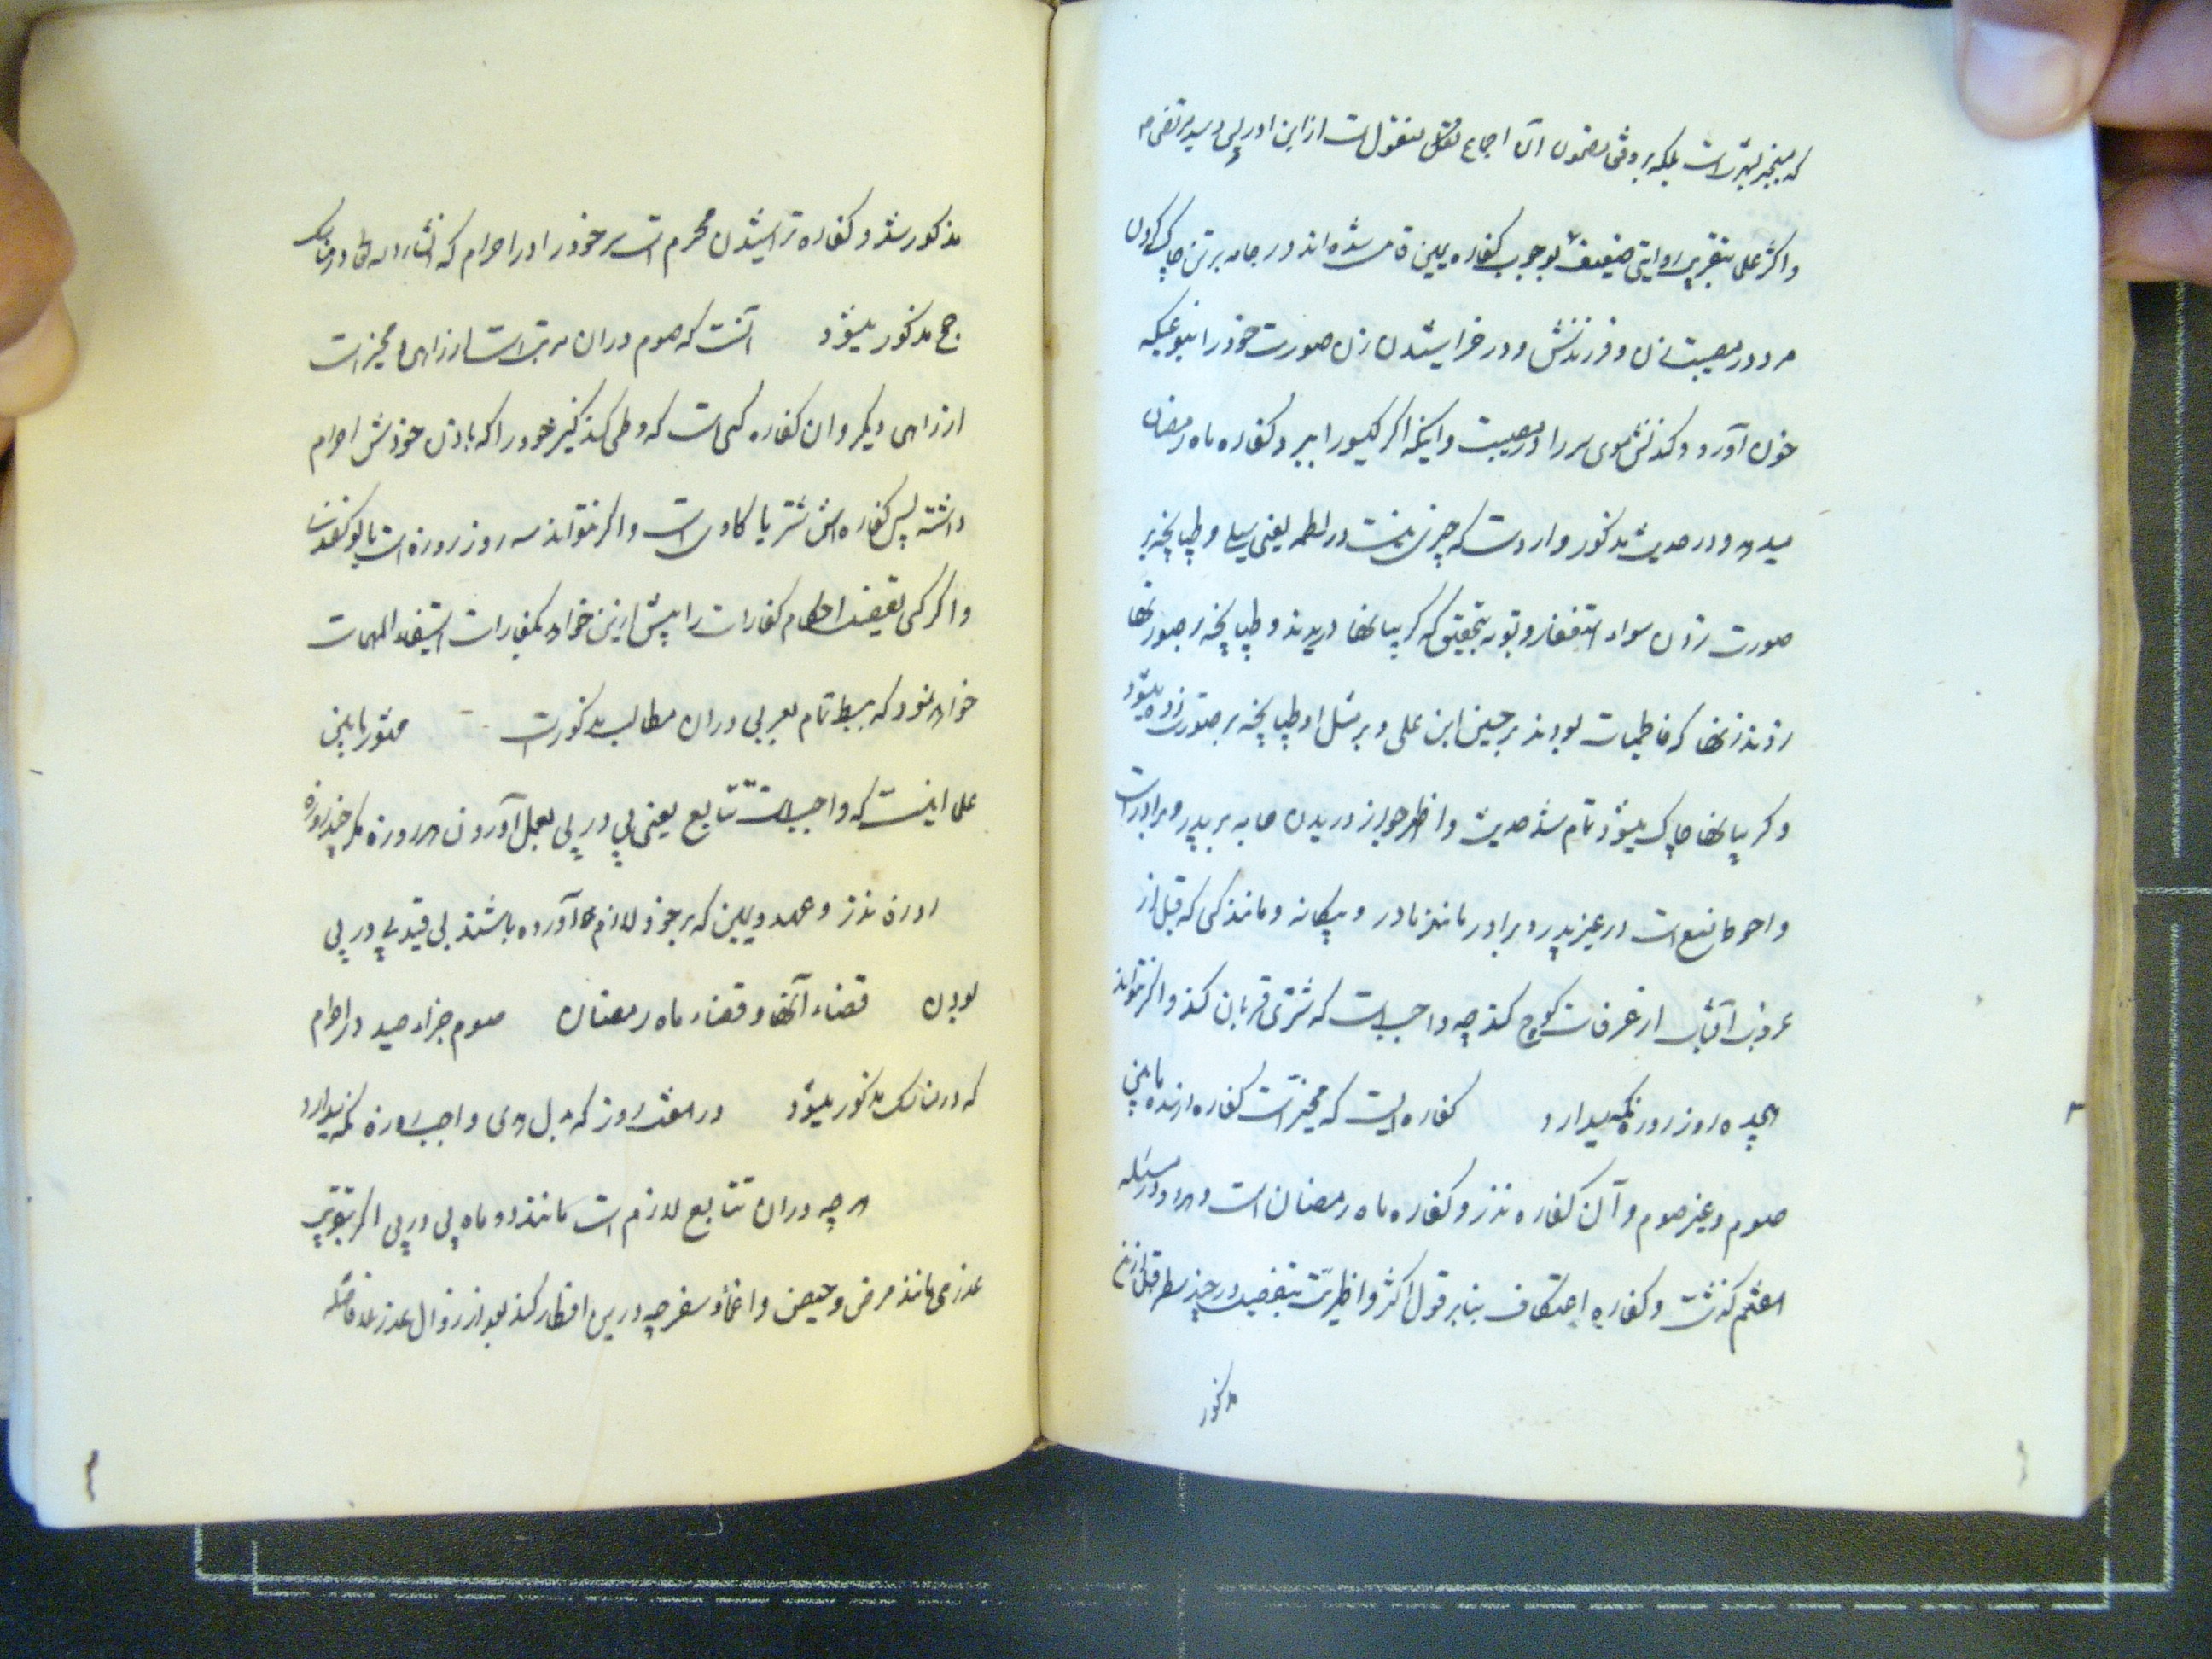 که منجبر بشهرتست بلکه بر وفق مضمون آن اجماع نقل منقول است از ابن ادریس و سید مرتضی م
و اکثر علی بتقریب روایتی ضعیف بوجوب کفاره یمین قایل شده‌اند در جامه بر تن چاک کردن
مرد در مصیبت زن و فرزندش و در خراشیدن زن صورت خود را بنوعیکه
خون آورد و کندنش موی سر را در مصیبت و اینکه اگر گیسو را ببرد کفاره ماه رمضان
میدهد و در حدیث مذکور واردست که چیزی نیست در لطمه یعنی سیلی و طپانچه بر
صورت زدن سواء استغفار و توبه بتحقیق که گریبانها دریدند و طپانچه بر صورتها
زدند زنها که فاطمیات بودند بر حسین ابن علی و بر مثل او طپانچه بر صورت زده میشود
و گریبانها چاک میشود تمام شد حدیث و اظهر جواز دریدن جامه بر پدر و برادرست
و احوط منع است در غیر پدر و برادر مانند مادر و بیگانه و مانند کسی که قبل از
غروب آفتاب از عرفات کوچ کند چه واجبست که شتری قربان کند و اگر نتواند
هیجده روز روزه نگهمیدارد کفاره ایست که مخیرست کفاره دهنده مابین
صوم و غیر صوم و آن کفاره نذر و کفاره ماه رمضان است و هر دو در مسئله
هفتم گذشت و کفاره اعتکاف بنابر قول اکثر و اظهرست بتفصیلی در چند سطر قبل ازین
مذکور
مذکور شد و کفاره تراشیدن محرم است سر خود را در احرام که انشاء الله تعالی در مناسک
حج مذکور میشود آنست که صوم در آن مرتب است از راهی و مخیر است
از راهی دیگر و آن کفاره کسی است که وطی کند کنیز خود را که باذن خودش احرام
داشته پس کفاره‌اش شتر یا گاوی است و اگر نتواند سه روز روزه است یا گوسفند
و اگر کسی بعضی احکام کفارات را بیش ازین خواهد بکفارات
خواهد نمود که ببسط تمام بعربی در آن مطالب مذکورست مشهور مابین
علی اینست که واجبست تتابع یعنی پی در پی بعمل آوردن هر روزه مگر چند روزه
روزه نذر و عهد و یمین که بر خود لازم آورده باشند بی قید پی در پی
بودن قضاء آنها و قضاء ماه رمضان صوم جزاء صید در احرام
که در مناسک مذکور میشود در هفت روز که بدل هدی واجب روزه نگهمیدارد
هر چه در آن تتابع لازم است مانند دو ماه پی در پی اگر بتقریب
عذری مانند مرض و حیض و اغماء و سفر چه در بین افطار کند بعد از زوال عذر